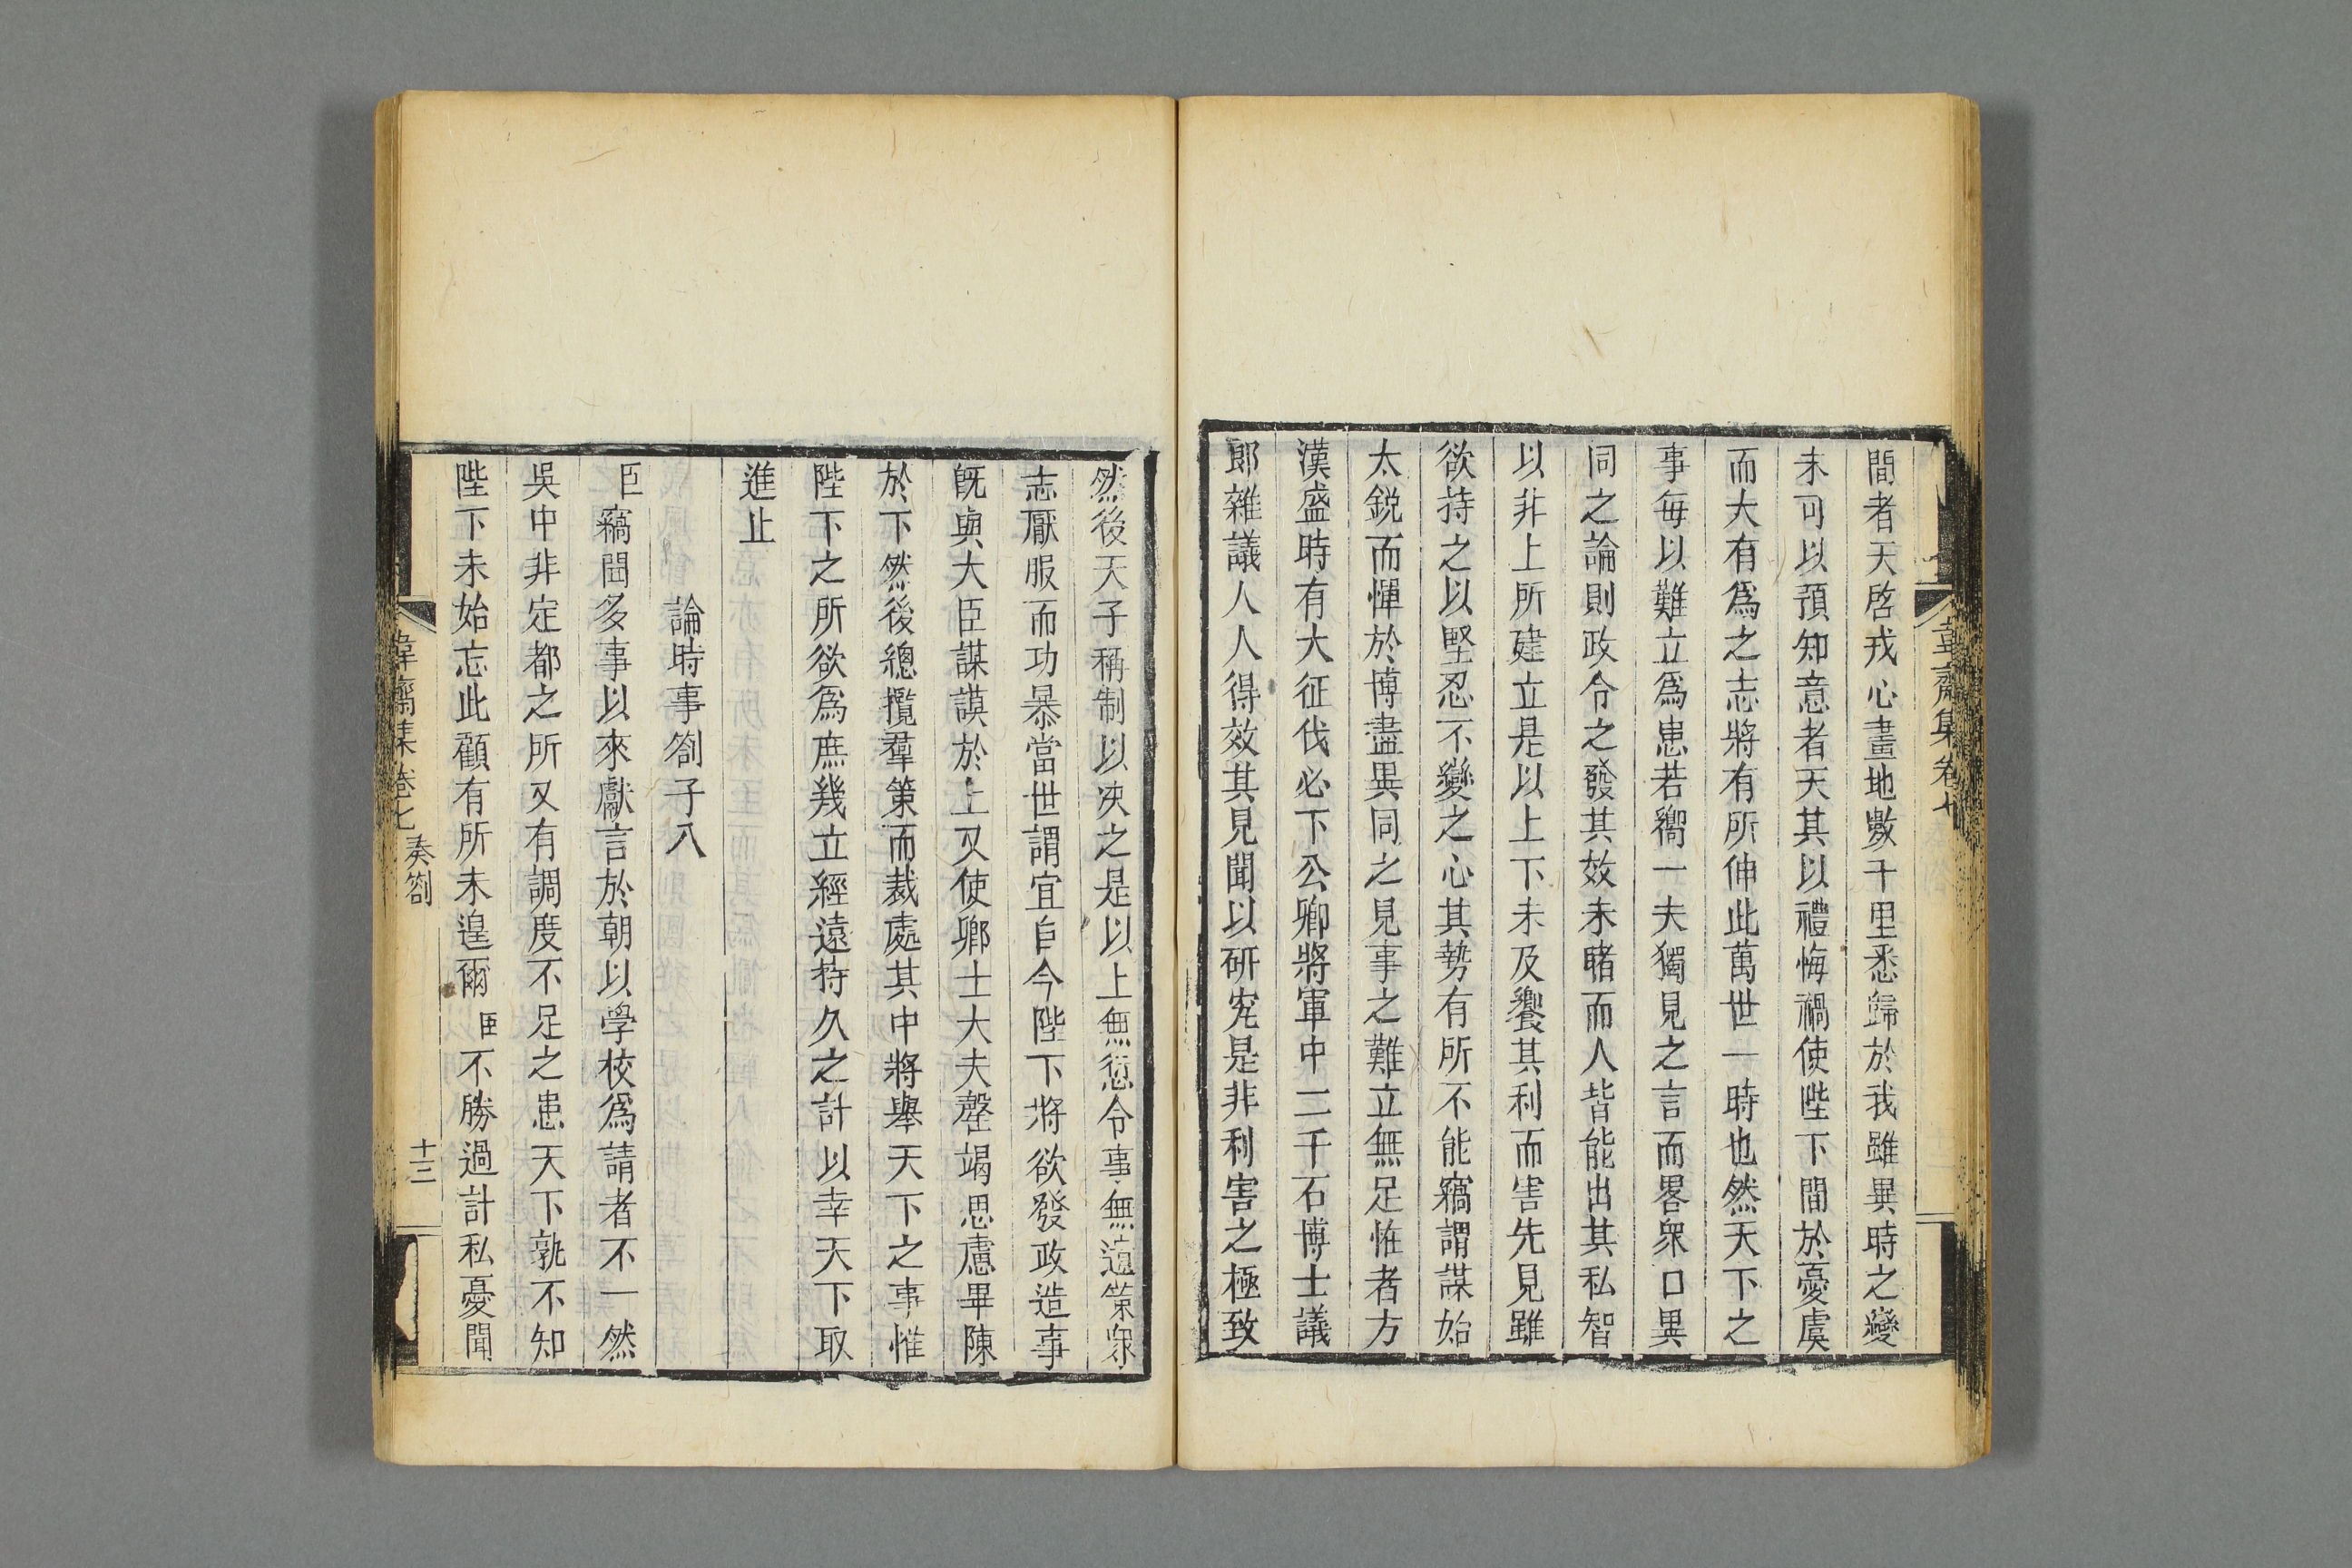 間者天啓戎心畫地數千里悉歸於我雖異時之變
未可以預知意者天其以禮悔禍使陛下間於憂虞
而大有爲之志將有所伸此萬世一時也然天下之
事每以難立爲患若嚮一夫獨見之言而畧衆口異
同之論則政令之發其效未睹而人皆能出其私智
以非上所建立是以上下未及饗其利而害先見雖
欲持之以堅忍不變之心其勢有所不能竊謂謀始
太銳而憚於博盡異同之見事之難立無足恠者方
漢盛時有大征伐必下公卿將軍中二千石博士議
郎雜議人人得效其見聞以研究是非利害之極致
韋齋集卷七
然後天子稱制以决之是以上無愆令事無遺策衆
志厭服而功暴當世謂宜自今陛下將欲發政造事
旣與大臣謀謨於上又使卿士大夫罄竭思慮畢陳
於下然後總攬羣策而裁處其中將舉天下之事惟
陛下之所欲爲庶幾立經遠持久之計以幸天下取
進止
論時事劄子八
臣竊聞多事以來獻言於朝以學校爲請者不一然
吳中非定都之所又有調度不足之患天下孰不知
陛下未始忘此顧有所未遑爾臣不勝過計私憂聞
韋齋集卷七 奏劄 十三